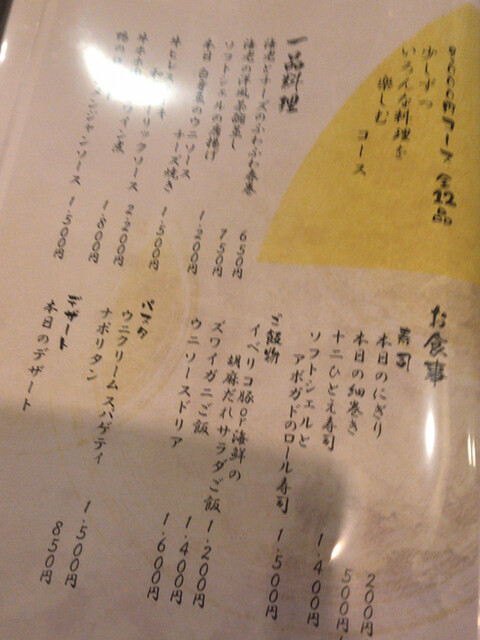 コース 全12品
少しずつ
いろんな料理を
楽しむ
コース
一品料理
海老とチーズのふわふわ春巻
海老の洋風茶碗蒸し 650円
ソフトシェルの唐揚げ 750円
本日の白身魚のウニソース 1.200円
チーズ焼き 1.500円
ソース 2.200円
ワイン煮 1.800円
ジャンソース 1.500円
お食事
寿司
本日のにぎり 200円
本日の細巻き 500円
十二ひとえ寿司 1.400円
ソフトシェルと
アボガドのロール寿司 1.500円
ご飯物
イベリコ豚or海鮮の
胡麻だれサラダご飯 1.200円
ズワイガニご飯 1.400円
ウニソースドリア 1.600円
パスタ
ウニクリームスパゲティ 1.500円
ナポリタン 850円
デザート
本日のデザート